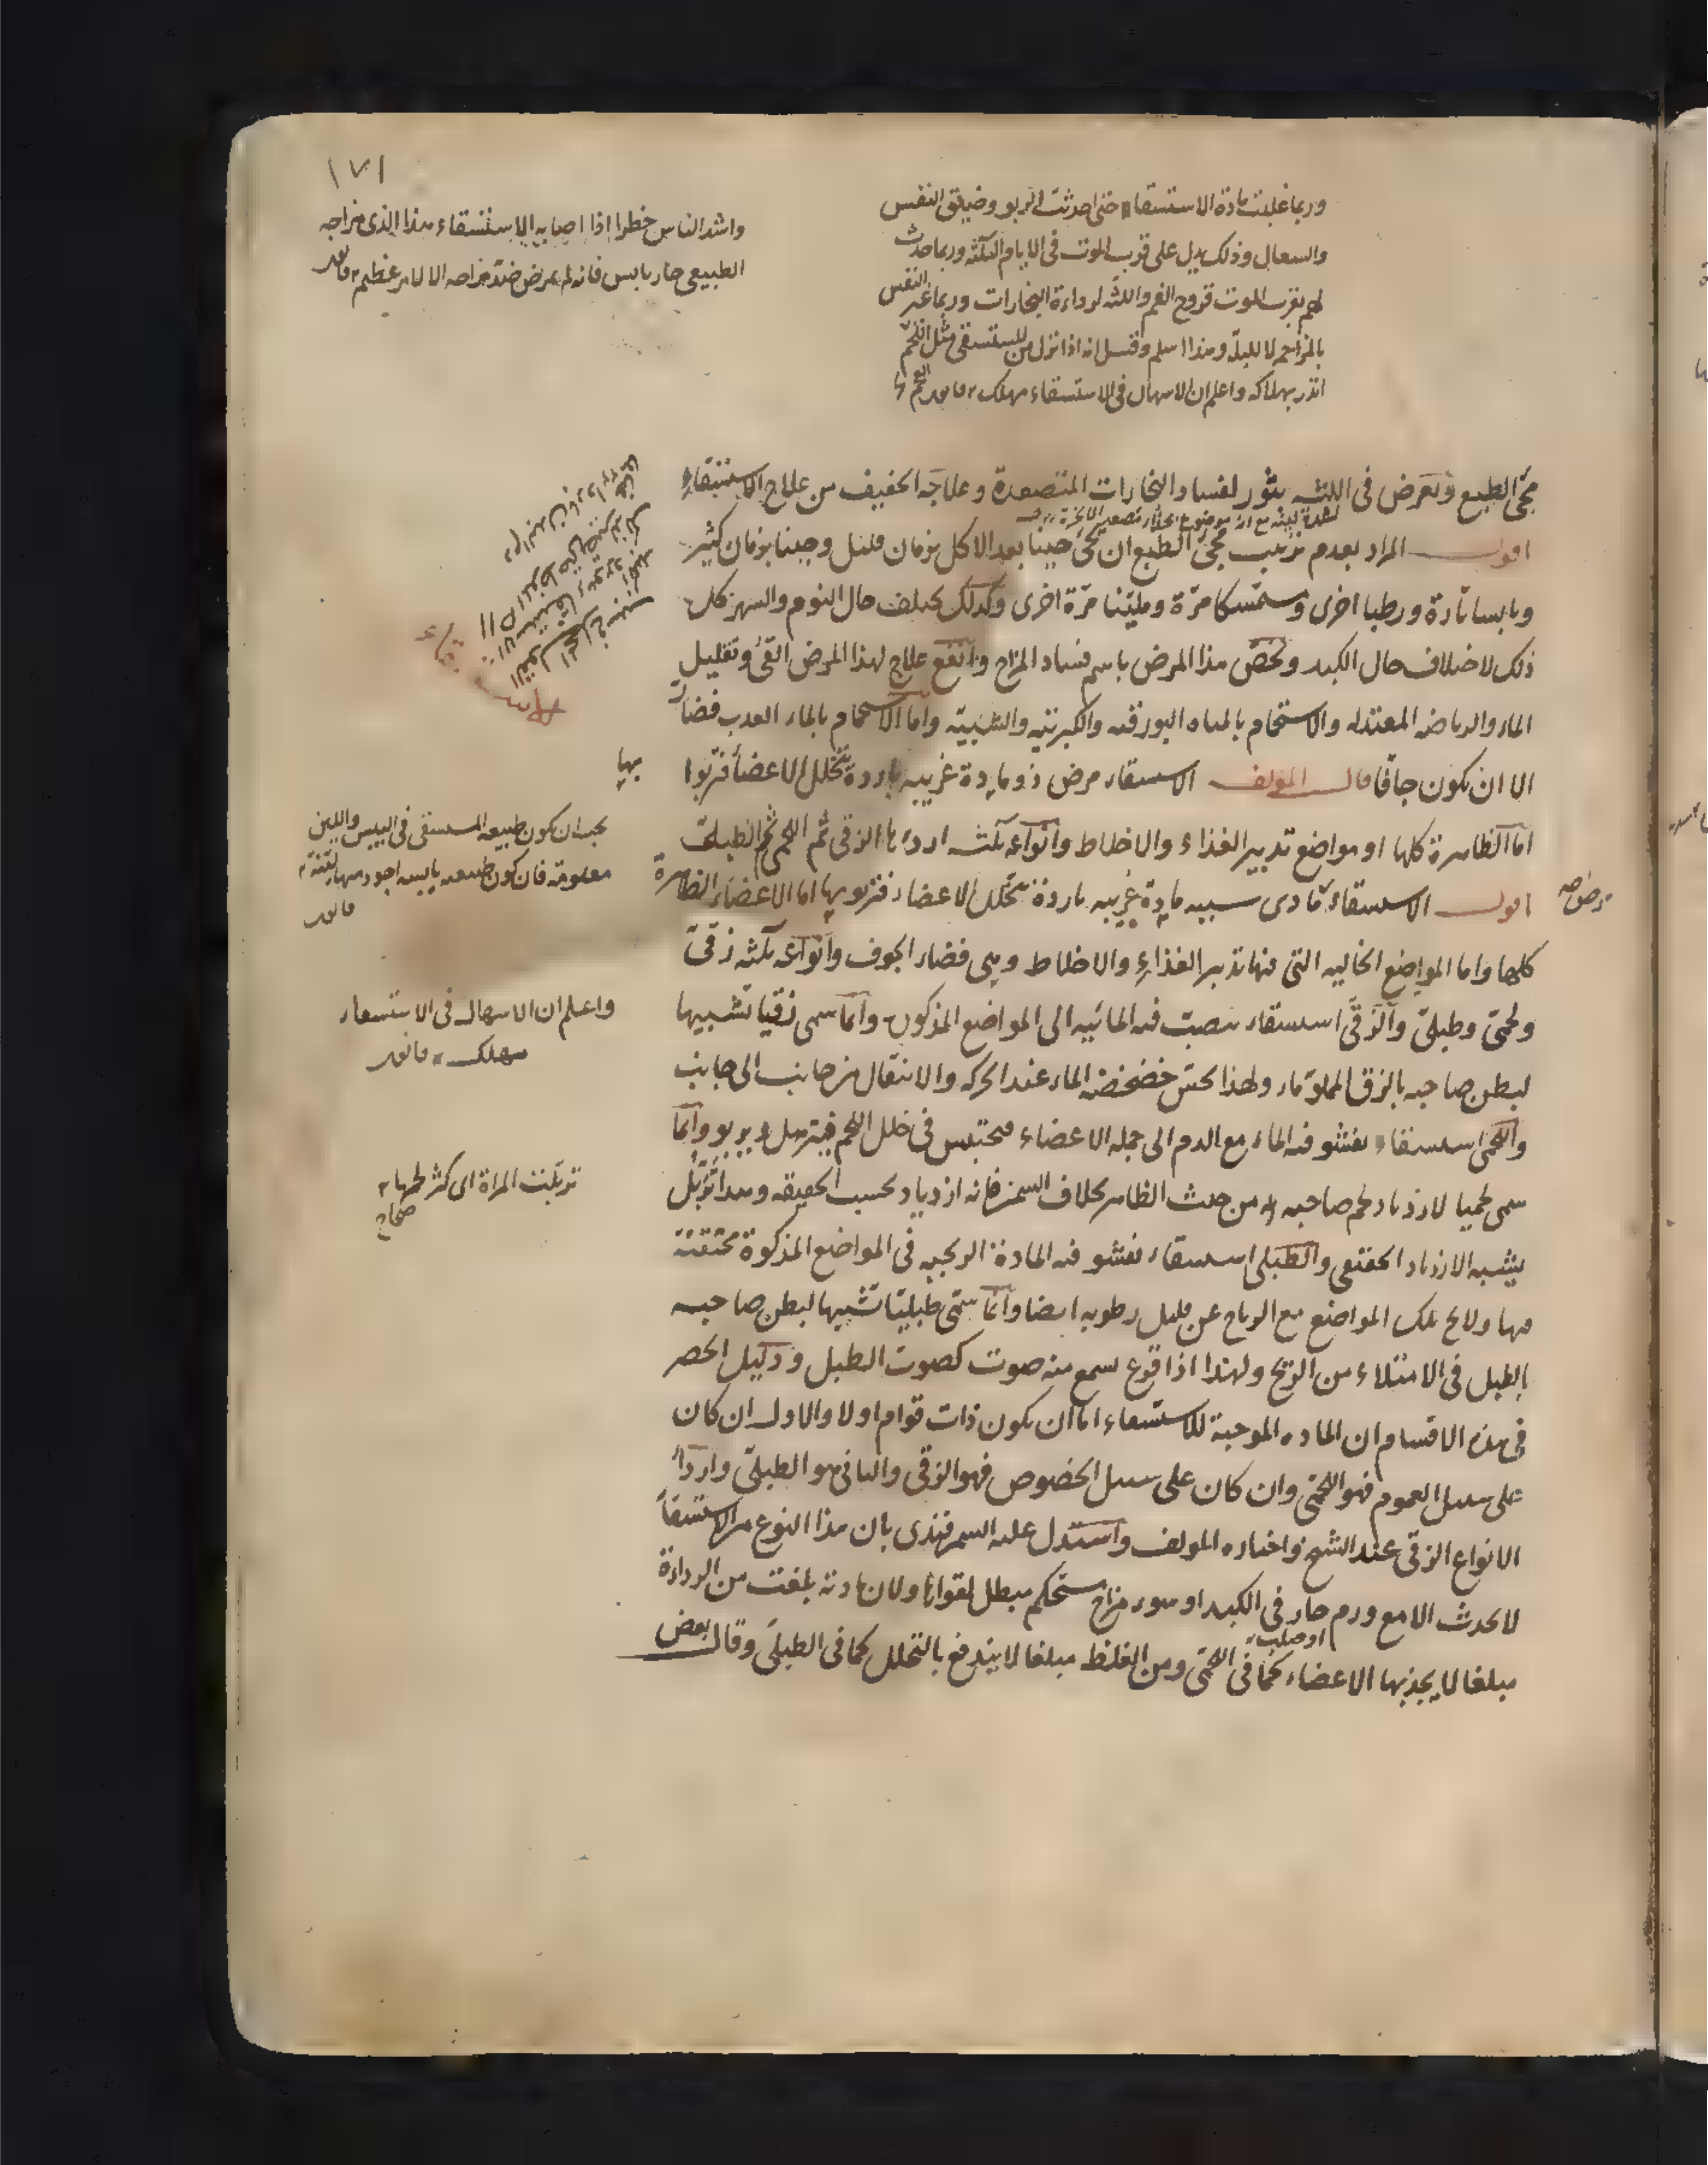 ١٧١
وربما غلبت مادة الاستسقاء حتى احدثت الربو وضيق النفس
والسعال وذلك يدل على قرب الموت فى الايام الثلثة وربما حدث
لهم بقرب الموت قروح الفم واللثه لرداءة البخارات وربما
انه اذا نزل من المستسقى مثل الفحم
انذر بهلاكه واعلم ان الاسهال فى الاستسقاء مهلك
واشد الناس خطرا اذا اصابه الاستسقاء هذا الذى مزاجه
الطبيعى حار يابس فانه لم يمرض ضد مزاجه الا لامر عظيم
مجئ الطبع وتعرض فى اللثه بثور لفساد البخارات المتصعدة وعلاجه الخفيف من علاج الاستسقاء
اقول المراد بعدم ترتيب مجئ الطبع ان يجئ حينا بعد الاكل بزمان قليل وحينا بزمان كثير
ويابسا تارة ورطبا اخرى ومستمسكا مرة ومليّنا مرّة اخرى وكذلك يختلف حال النوم والسهر كل
ذلك لاختلاف حال الكبد ويخصّ هذا المرض باسم فساد المزاج وانفع علاج لهذا المرض القئ وتقليل
الماء والرياضه المعتدله والاستحمام بالمياه البورقيه والكبريتيه والشبيّه واما الاستحمام بالماء العذب فضارّ
الا ان يكون جافا قال المؤلف الاستسقاء مرض ذو مادة غريبه باردة تتخلل الاعضأ فتربوا
بها
اما الظاهرة كلها او مواضع تدبير الغذاء والاخلاط وانواعه ثلثه اردءها الزقى ثم اللحمى ثم الطبلى
اقول الاستسقاء مادى سببه مادة غريبه باردة تتخلل الاعضاء فتربو بها اما الاعضاء الظاهرة
مرض
كلها واما المواضع الخاليه التى فيها تدبير الغذاء والاخلاط وهى فضاء الجوف وانواعه ثلثه زقىّ
ولحمىّ وطبلىّ والزقى استسقاء تنصبّ فيه المائيه الى المواضع المذكورة وانما سمى زقيا تشبيها
لبطن صاحبه بالزق المملوّ ماء ولهذا يحسّ خضخضة الماء عند الحركه والانتقال من جانب الى جانب
واللحمى استسقاء يفشو فيه الماء مع الدم الى جملة الاعضاء فيحتبس فى خلل اللحم فيترهل ويربو وانما
سمى لحميا لازدياد لحم صاحبه من حيث الظاهر بخلاف السمن فانه ازدياد بحسب الحقيقه وهذا تربّل
يشبه الازدياد الحقيقى والطبلى استسقاء يفشو فيه المادة الريحيه فى المواضع المذكورة محتقنة
فيها ولا يخ تلك المواضع مع الرياح عن قليل رطوبه ايضا وانما سمّى طبليّا تشبيها لبطن صاحبه
بالطبل فى الامتلاء من الريح ولهذا اذا قرع سمع منه صوت كصوت الطبل ودليل الحصر
فى هذه الاقسام ان الماده الموجبة للاستسقاء اما ان يكون ذات قوام او لا والاول ان كان
على سبيل العموم فهو اللحمى وان كان على سبيل الخصوص فهو الزقى والثانى هو الطبلىّ واردأ
الانواع الزقى عند الشيخ واختاره المؤلف واستدل عليه السمرقندى بان هذا النوع من الاستسقاء
لا يحدث الا مع ورم حار فى الكبد او سوء مزاج مستحكم مبطل لقواها ولان مادته بلغت من الرداءة
او صلب
مبلغا لا يجذبها الاعضاء كما فى اللحمى ومن الغلظ مبلغا لا يندفع بالتحلل كما فى الطبلى وقال بعض
يجب ان يكون طبيعه المستسقى فى اليبس واللين
معلومة فان كون طبيعته يابسه اجود منها لينة
واعلم ان الاسهال فى الاستسقاء
مهلك
تربّلت المراة اى كثر لحمها
صحاح